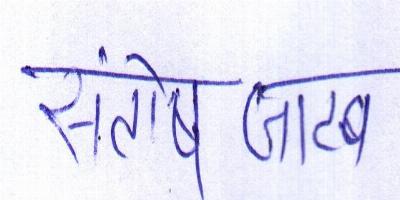 संतोष जाटव